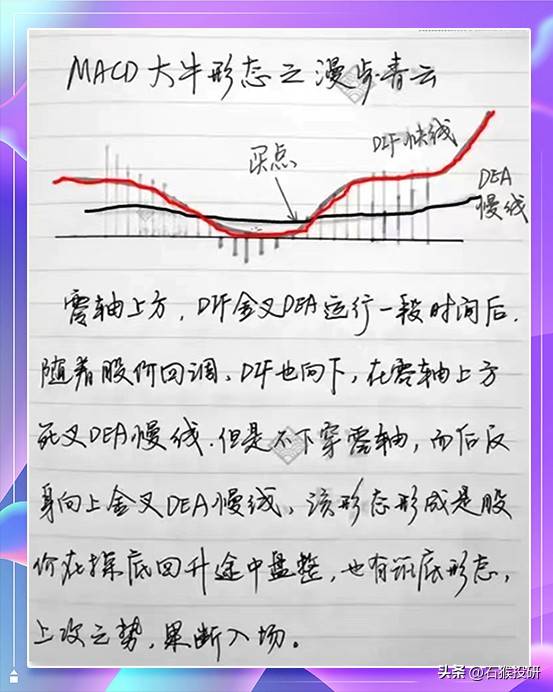 MACD大牛形态之漫步青云
买点
DIF快线
DEA
慢线
零轴上方，DIF金叉DEA运行一段时间后.
随着股价回调、DIF也向下，在零轴上方
死叉DEA慢线.但是不下穿零轴，而后反
身向上金叉DEA慢线、该形态形成是股
价在探底回升途中盘整，也有筑底形态，
上攻之势，果断入场。
头条 @石猴投研